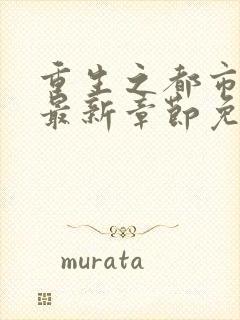 重生之都市
最新章節免
murata